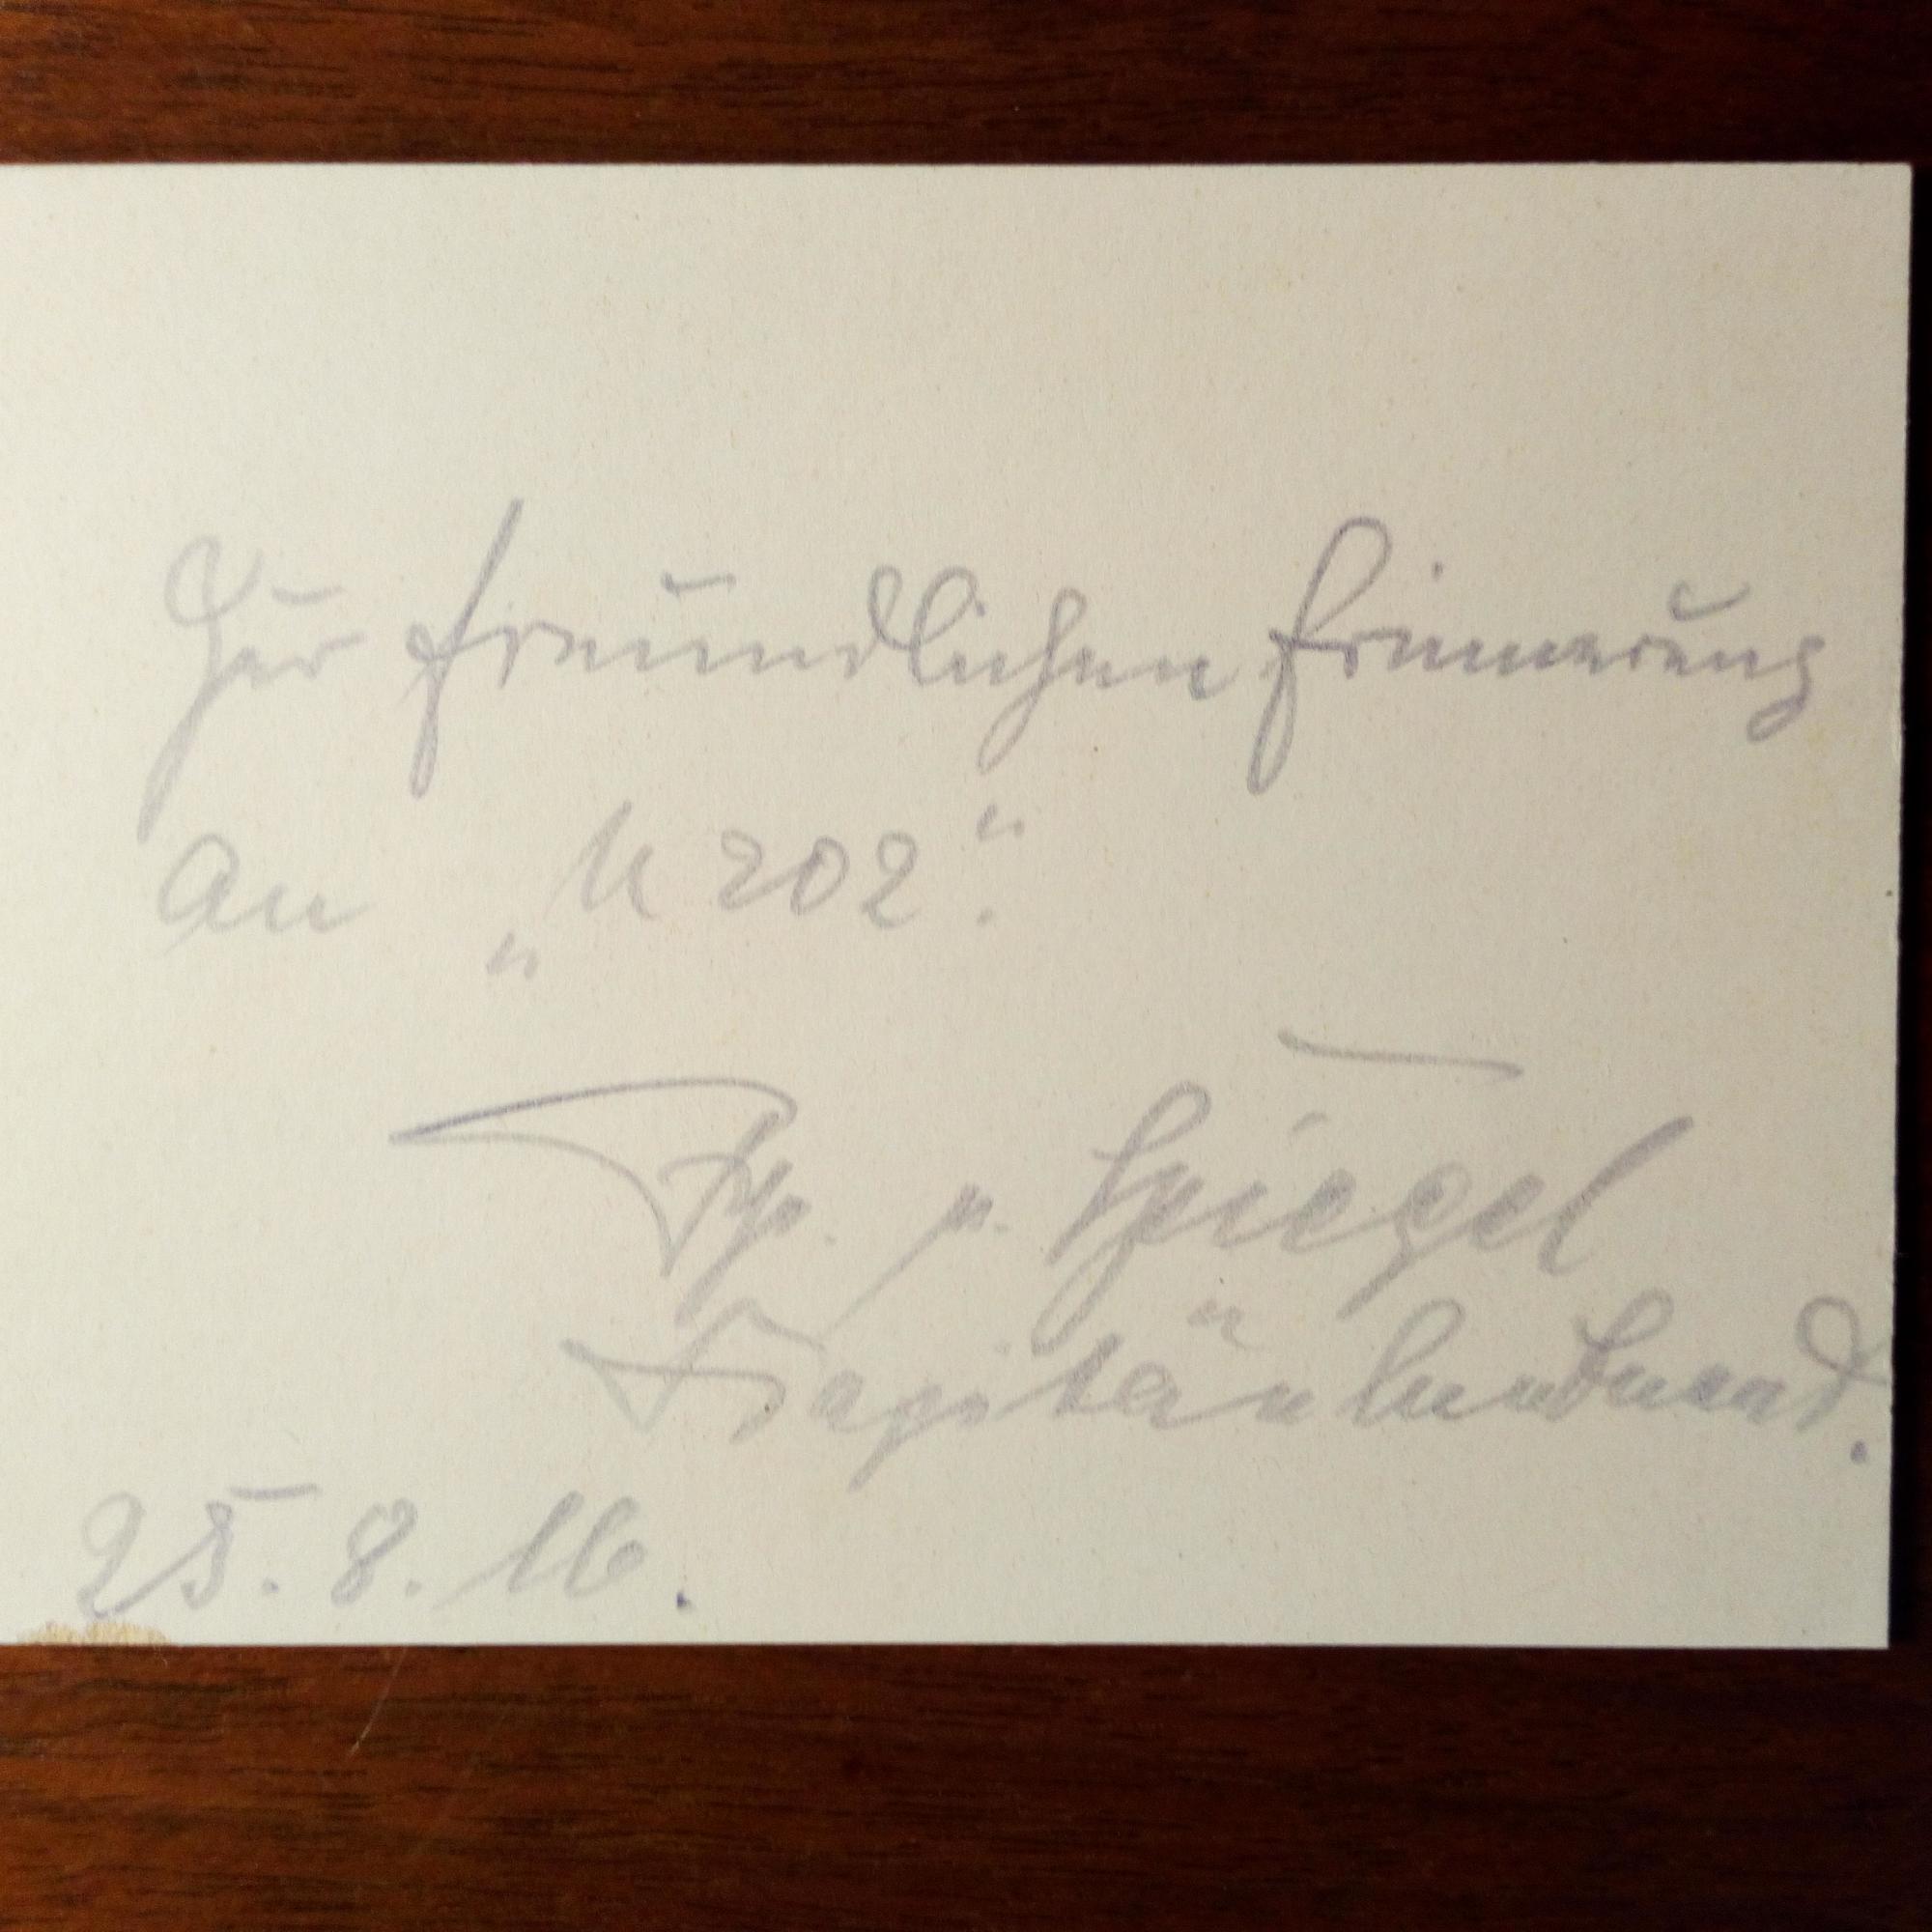 Zur freundlichen Erinnerung
an „U 202".
Frh. v. Spiegel
Kapitänleutnant.
25.8.16.